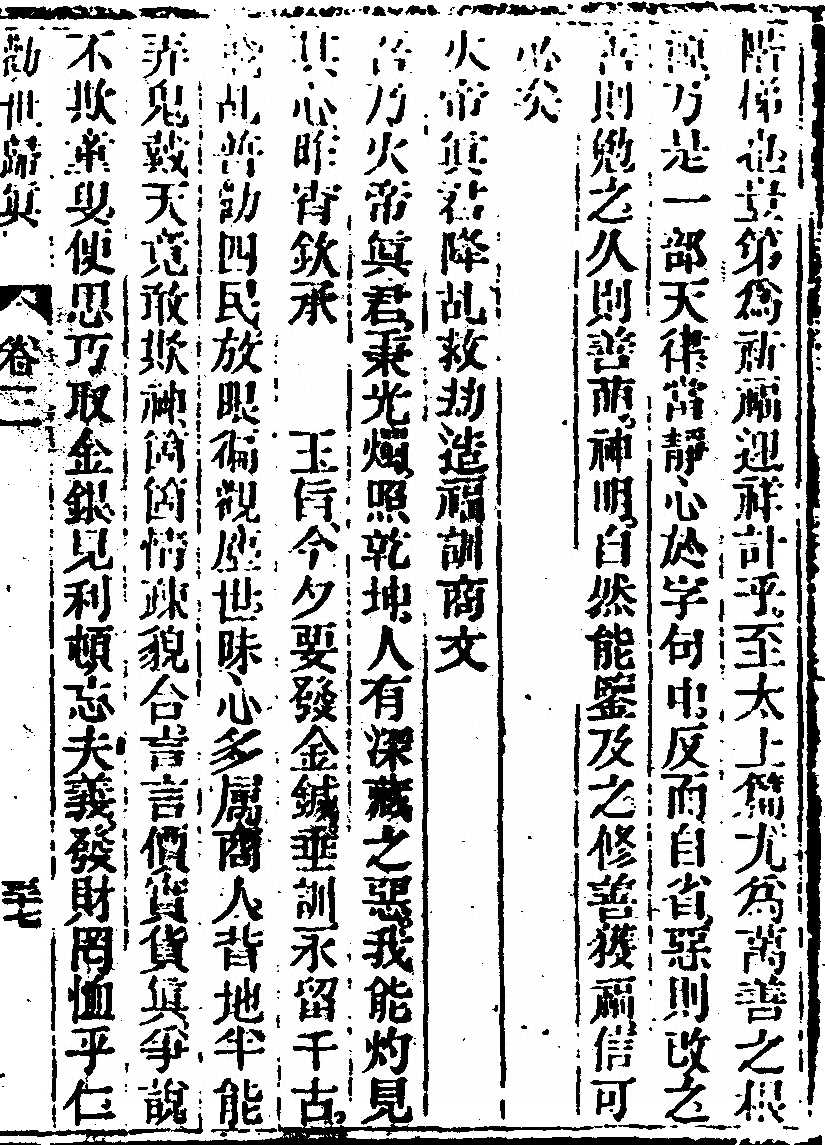 階梯也豈第爲祈福迎祥計乎至太上篇尤爲萬善之根
源乃是一部天律當靜心於字句中反而自省惡則改之
善則勉之久則善萌神明自然能鑒及之修善獲福信可
必矣
火帝眞君降乩救劫造福訓商文
吾乃火帝眞君秉光燭照乾坤人有深藏之惡我能灼見
其心昨宵欽承　玉旨今夕要發金鍼垂訓永留千古
飛乩普勸四民放眼徧觀塵世昧心多属商人背地半能
弄鬼戴天竟敢欺神箇箇情疎貌合言言價實貨眞爭說
不欺童叟使思巧取金銀見利頓忘夫義發財罔恤乎仁
勸世歸眞　卷二　至七